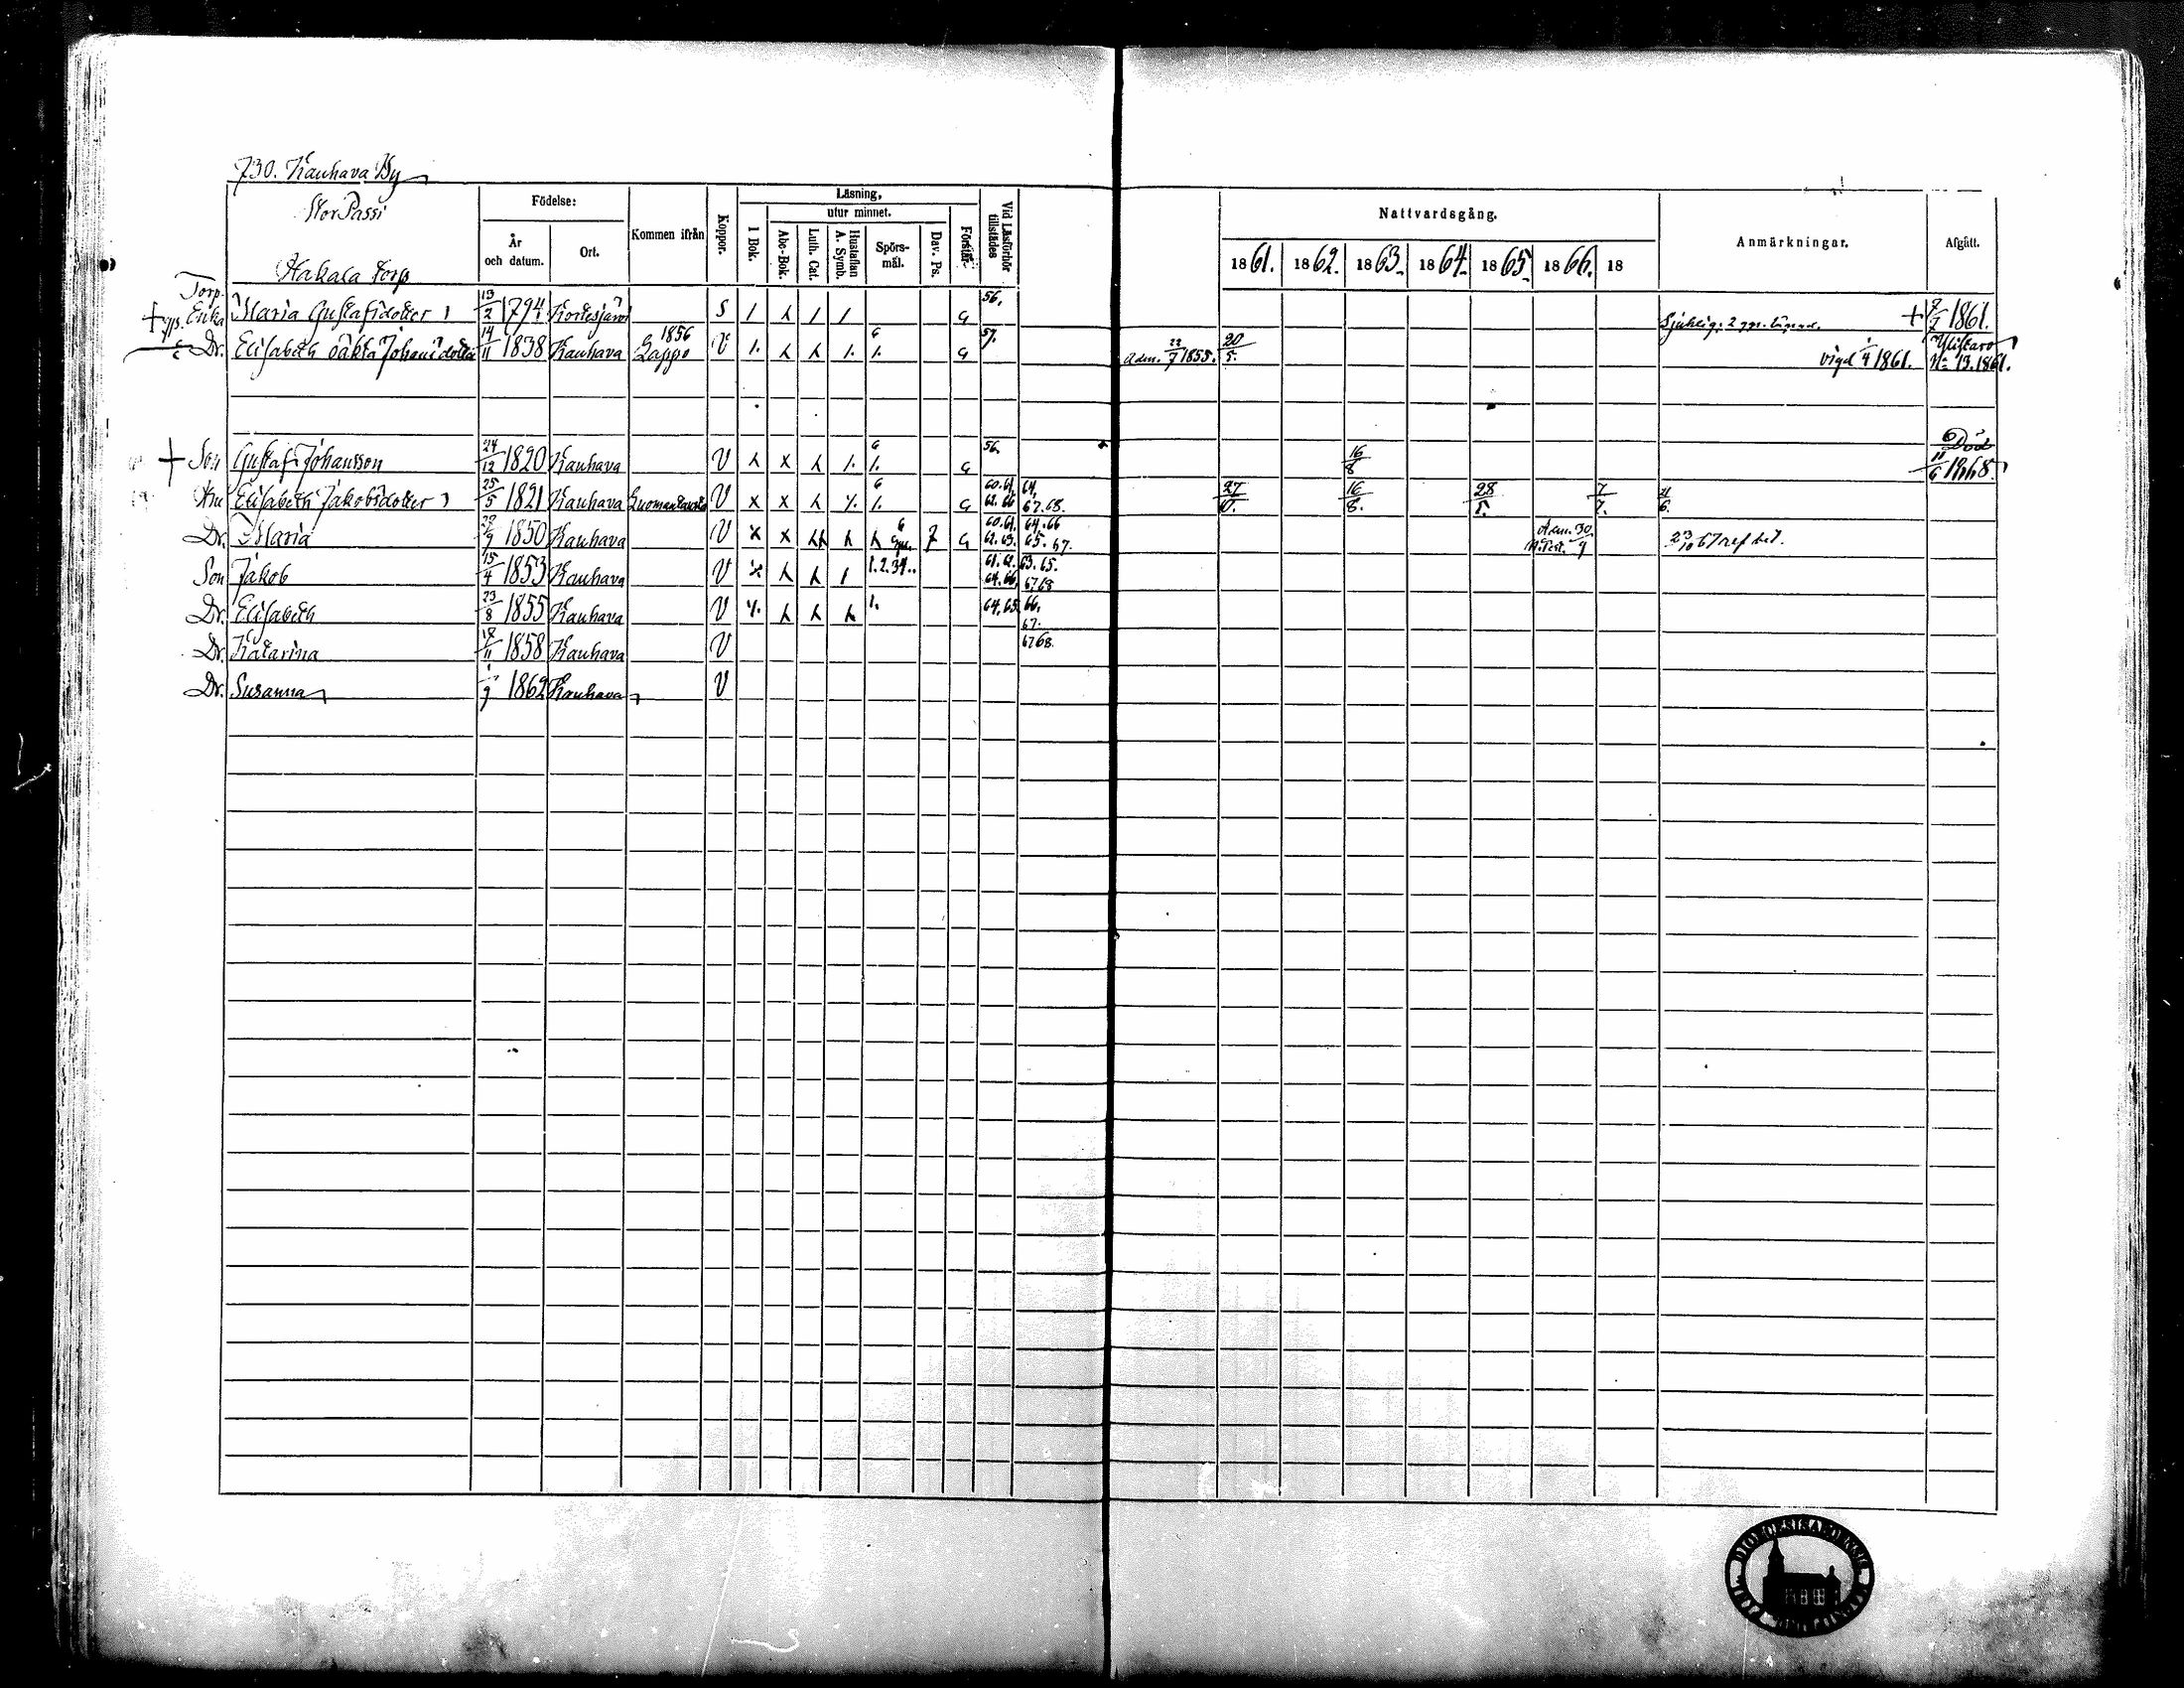 730. Kauhava By
Stor Passi
Hakala Torp
Födelse:
År och datum.
Ort.
Kommen ifrån
Koppor.
Läsning,
utur minnet.
I Bok.
Abc-Bok.
Luth. Cat.
Hustaflan A. Symb.
Spörsmål.
Dav. Ps.
Förstår
Vid Läsförhör tillstädes
Nattvardsgång.
1861. 1862. 1863. 1864. 1865. 1866. 18
Anmärkningar.
Afgått.
Torp. Enka Maria Gustafsdotter 13/2 1794 Kortesjärvi S 56. G Sjuklig. + 7/7 1861.
Dr. Elisabeth oäkta Johansdotter 14/11 1838 Kauhava 1856 Lappo V G 57. Adm. 22/7 1855. 20/5. vigd 1/4 1861. Ylistaro N:o 13. 1861.
+ Son Gustaf Johansson 24/12 1820 Kauhava V G 56. 16/8 Död 11/6 1868.
Hu Elisabeth Jakobsdotter 25/5 1821 Kauhava V G 60.61. 64. 62. 66 67.68. 27/10. 16/8. 28/5. 7/7.
Dr. Maria 1850 Kauhava V 7 G 60.61. 64.66 62.63. 65. 67. Adm. 30/9 23/10 67 ref bet.
Son Jakob 15/4 1853 Kauhava V 1.2.34.. 61.62. 63.65. 64.66. 67.68
Dr. Elisabeth 23/8 1855 Kauhava V 1. 64.65. 66. 67.
Dr. Katarina 18/11 1858 Kauhava V 67.68.
Dr. Susanna 1/9 1862 Kauhava V